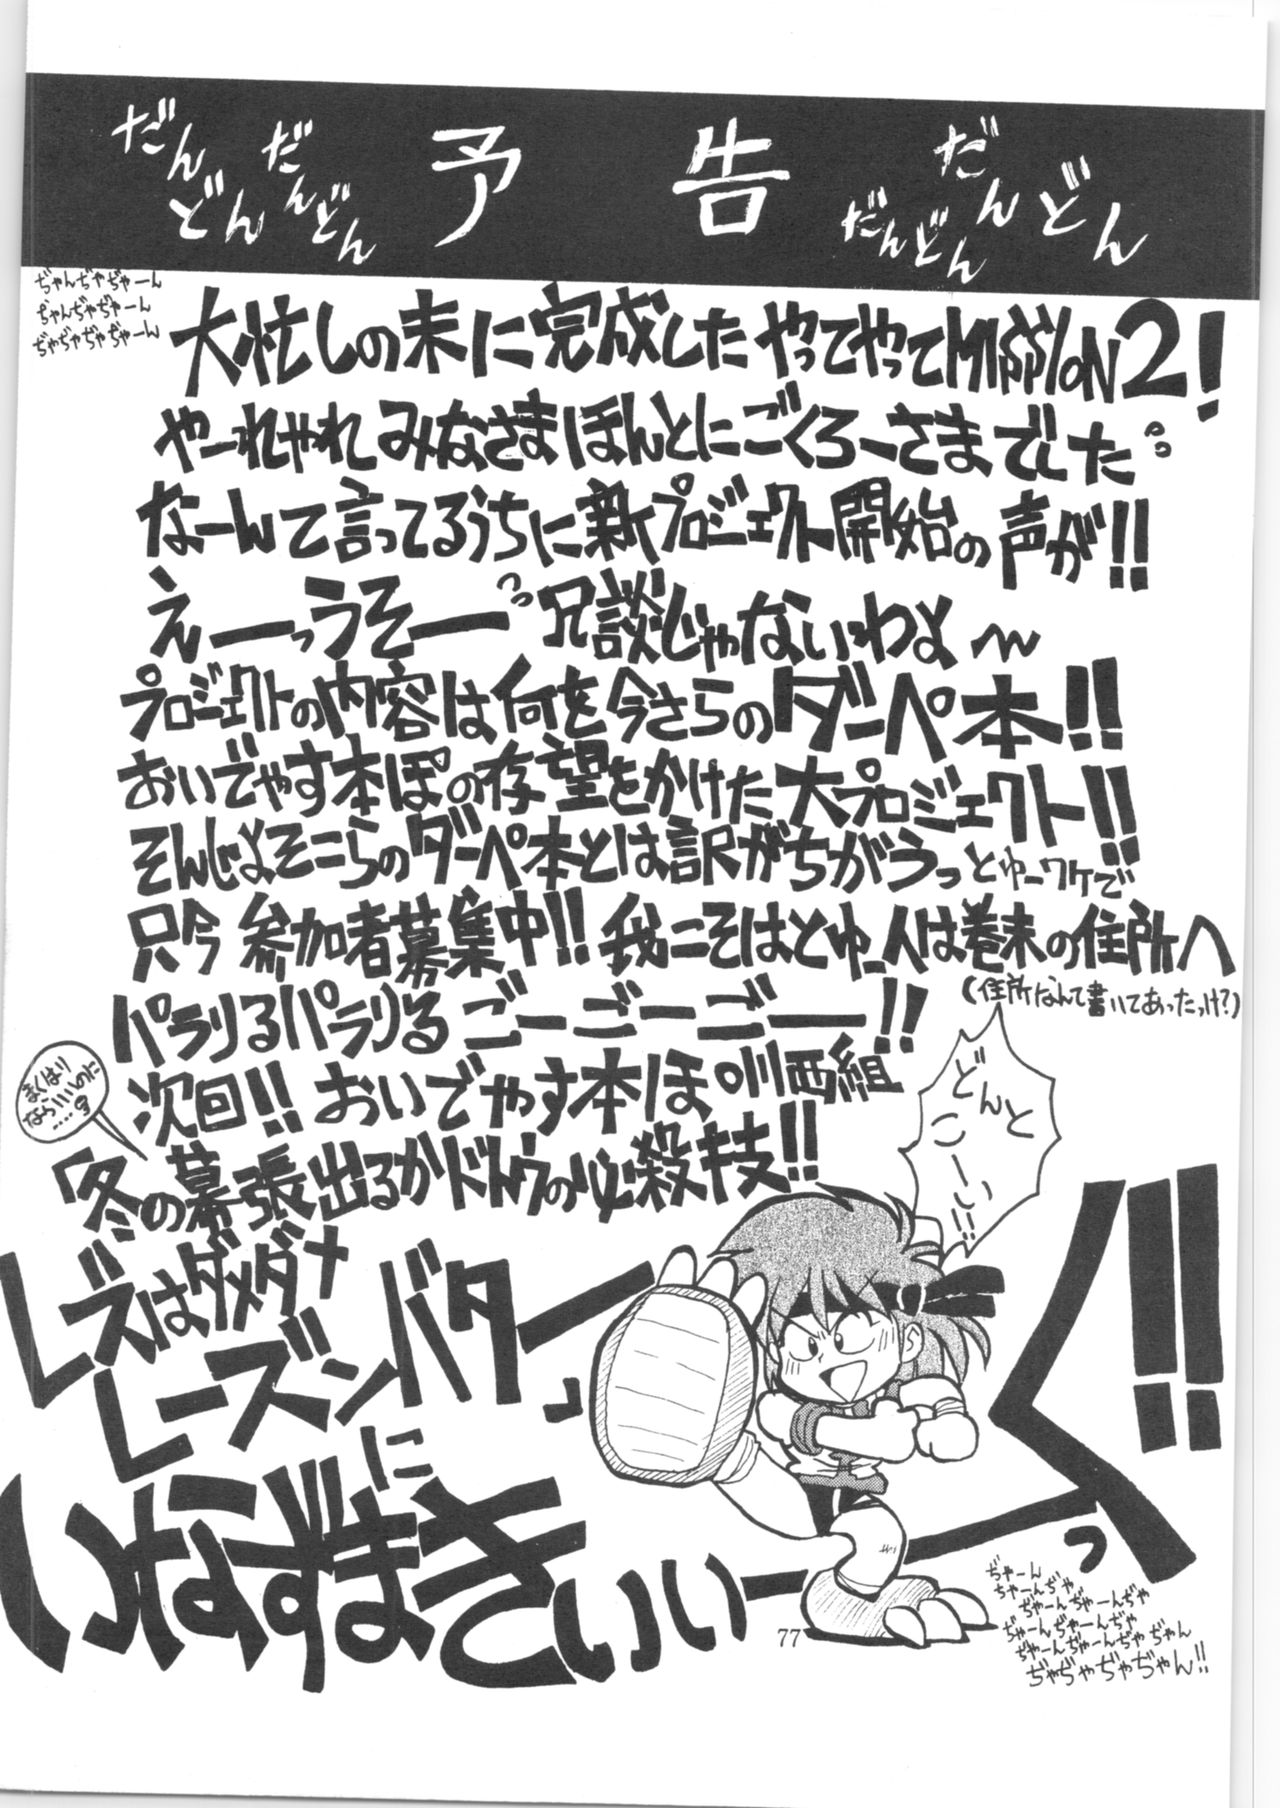 だんどん
だんどん
予告
だんどん
だんどん
ぢゃんぢゃぢゃーん
ぢゃんぢゃぢゃーん
ぢゃぢゃぢゃぢゃーん
大忙しの末に完成したやってやってMISSION2!
やーれやれみなさまほんとにごくろーさまでした
なーんて言ってるうちに新プロジェクト開始の声が!!
えーーっうそーー冗談じゃないわよ〜
プロジェクトの内容は何を今さらのダーペ本!!
おいでやす本ぽの存望をかけた大プロジェクト!!
そんじょそこらのダーペ本とは訳がちがうっとゆーワケで
只今参加者募集中!!我こそはとゆー人は巻末の住所へ
(住所なんて書いてあったっけ?)
パラりるパラりるごーごーごーー!!
次回!!おいでやす本ほ°川西組
まくはり
ならいいのに
「冬の幕張出るかドトウの必殺技!!
レズはダメダメ
レーズンバターに
いなずまきいぃーっく!!
どんと
こーい!!
ぢゃーん
ちゃーんぢゃ
ぢゃーんぢゃーんぢゃ
ぢゃーんぢゃーんぢゃ
ぢゃーんぢゃーんぢゃぢゃん
ぢゃぢゃぢゃぢゃん!!
77